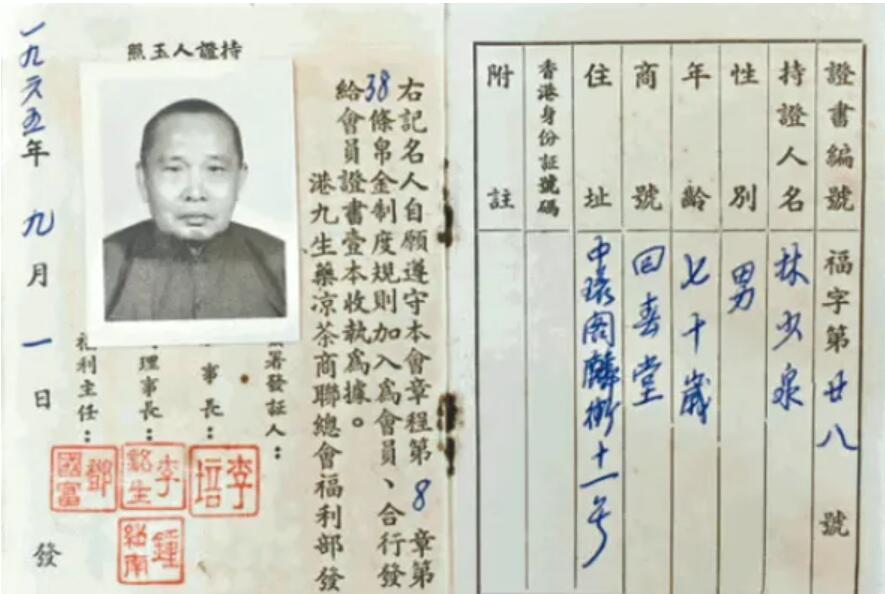 證書編號 福字第廿八號
持證人名 林少泉
性別 男
年齡 七十歲
商號 回春堂
住址 中環閣麟街十一号
香港身份証號碼
附註
持證人玉照
右記名人自願遵守本會章程第8章第
38條帛金制度規則加入爲會員、合行發
給會員證書壹本收執爲據。
港九生藥凉茶商聯總會福利部發
署發証人：
事長：李培
理事長：李銘生
利主任：鄧國富
一九六五年九月一日發